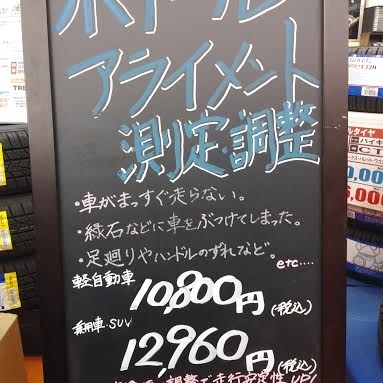 ホイール
アライメント
測定調整
・車がまっすぐ走らない。
・縁石などに車をぶつけてしまった。
・足廻りやハンドルのずれなど。
etc....
軽自動車
10,800円(税込)
乗用車・SUV
12,960円(税込)
調整で走行安定性 UP!